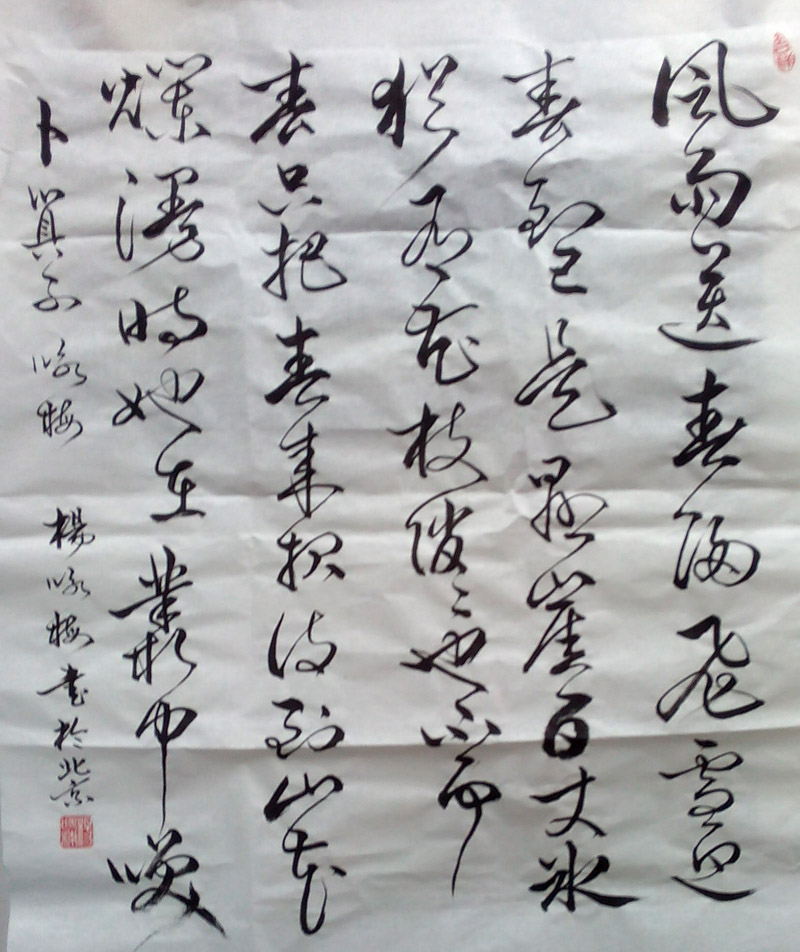 風雨送春歸飛雪迎
春到已是懸崖百丈冰
猶有花枝俏〻也不爭
春只把春來報待到山花
爛漫時她在叢中咲
卜算子 咏梅 楊咏梅書於北京